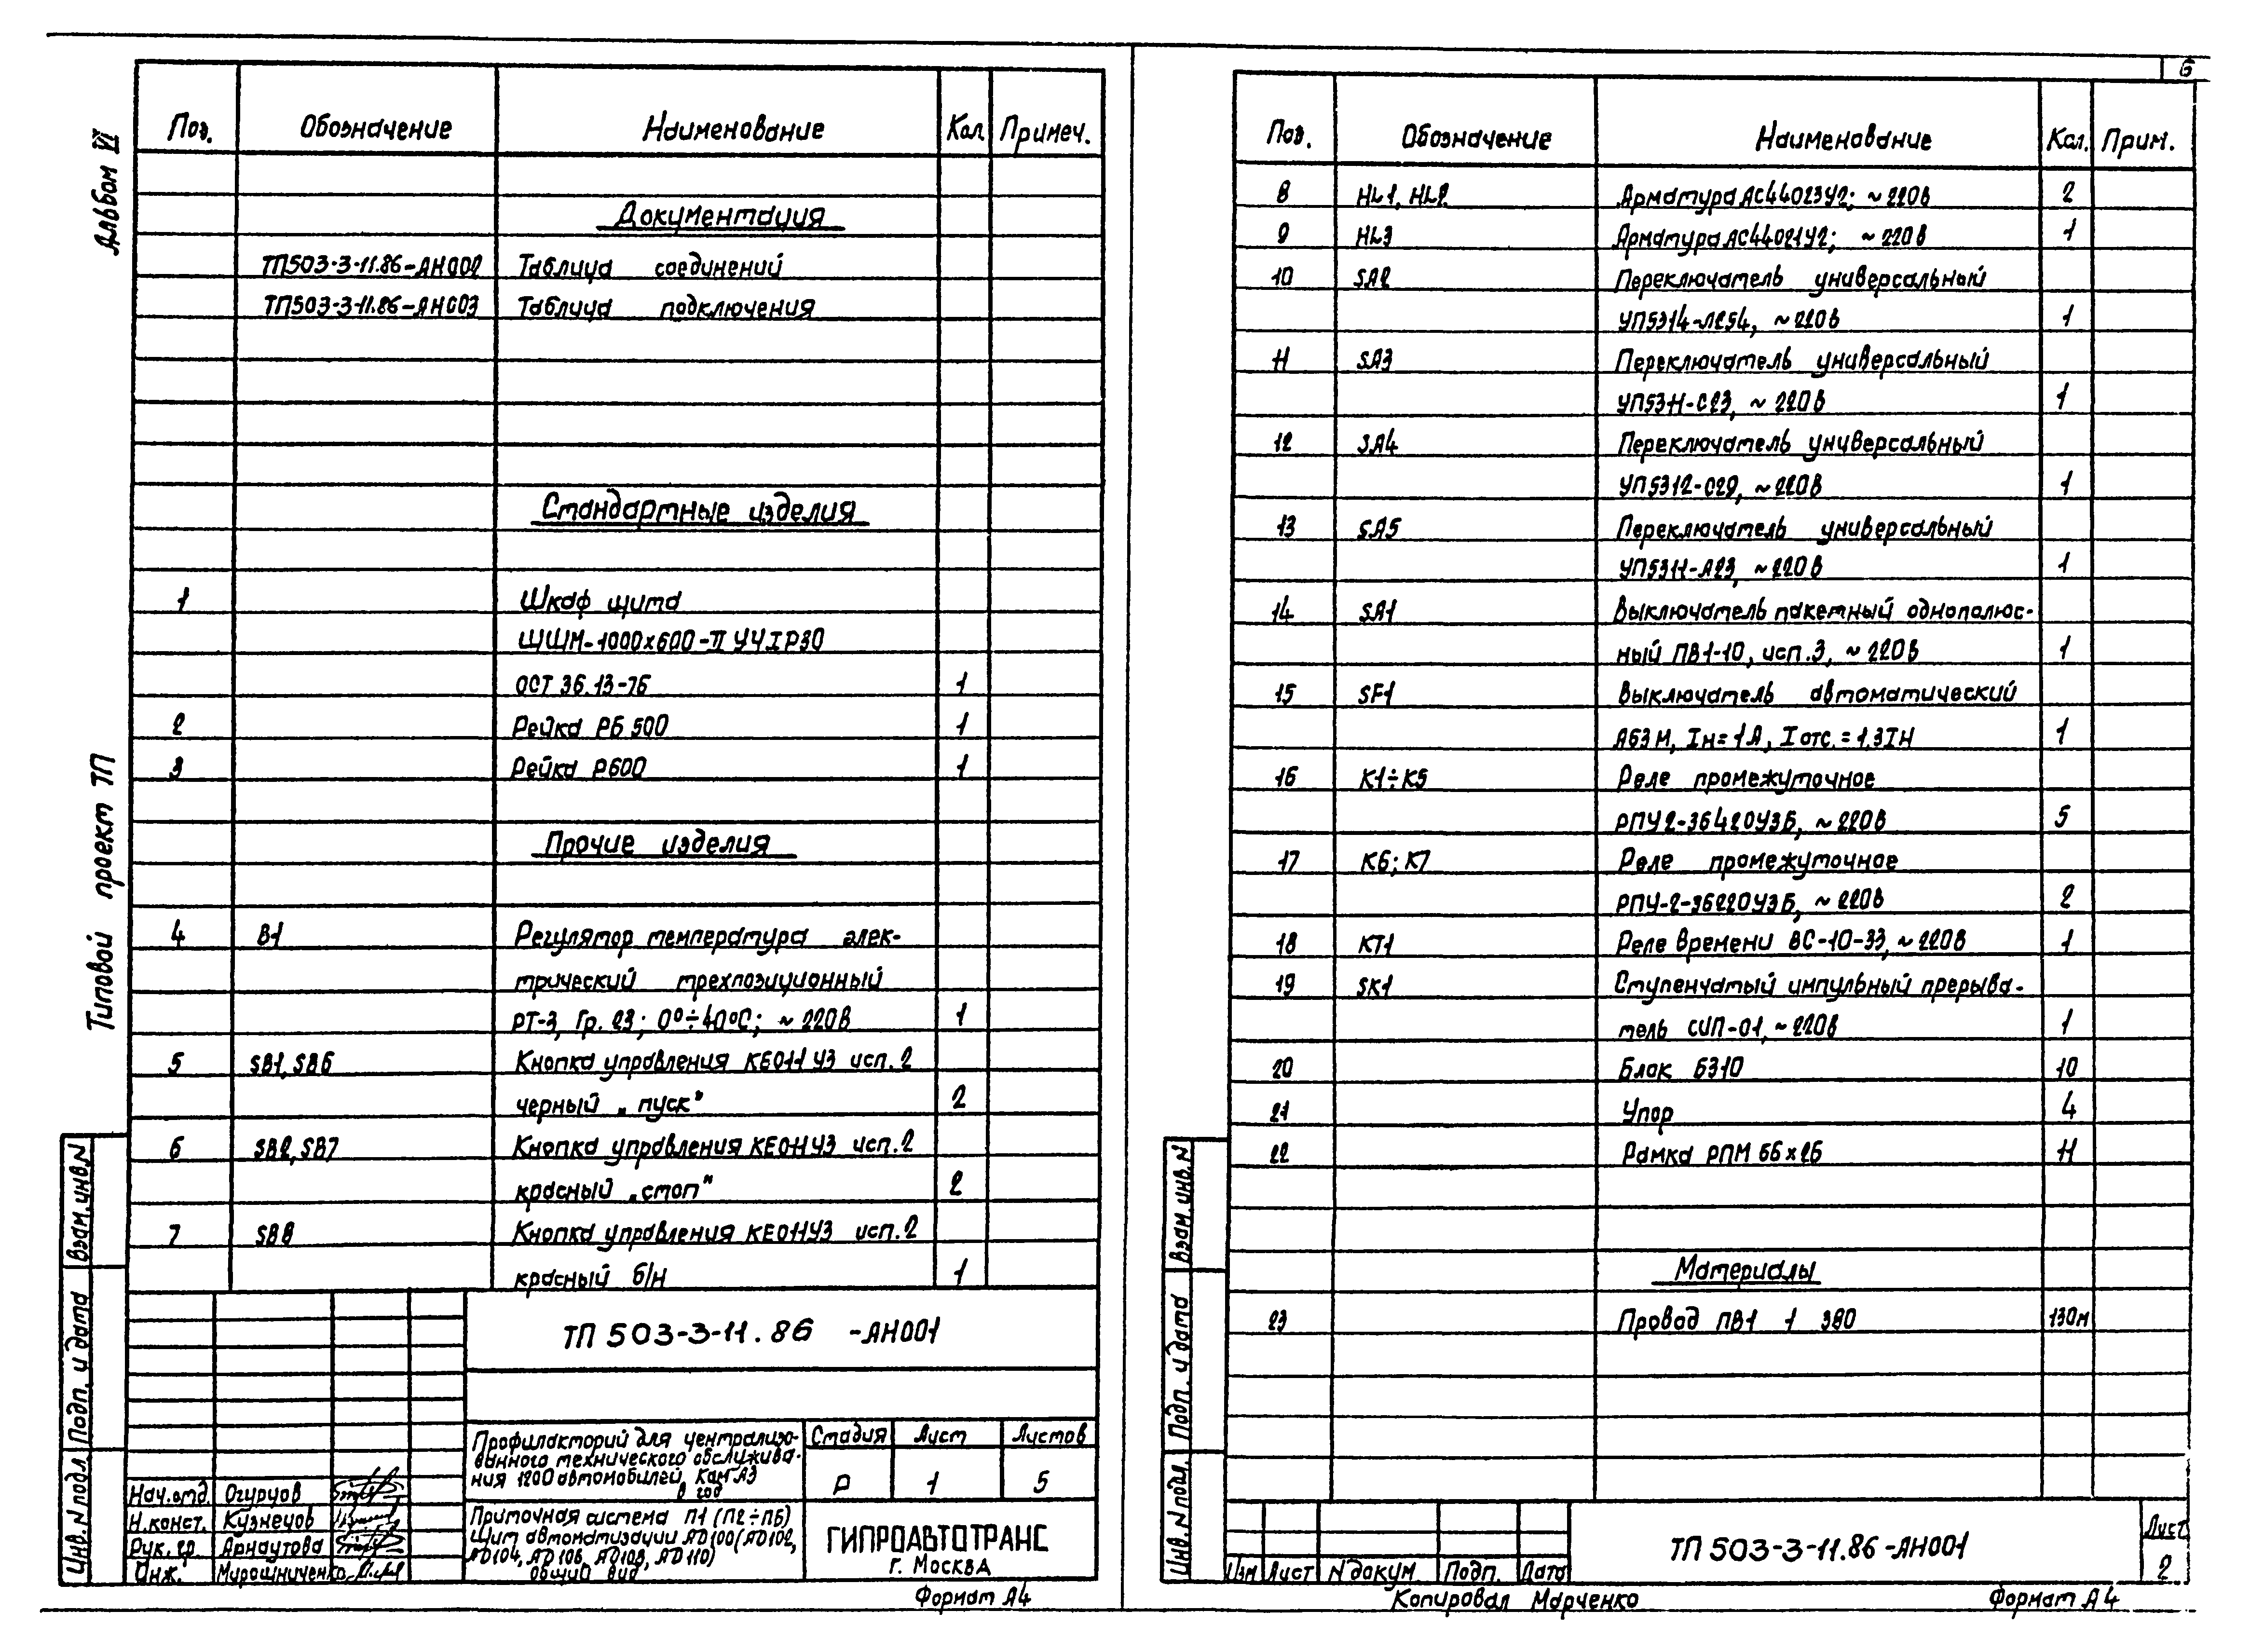 Альбом VI
Типовой проект ТП
Поз. Обозначение Наименование Кол Примеч.
Документация
ТП503-3-11.86-АН002 Таблица соединений
ТП503-3-11.86-АН003 Таблица подключения
Стандартные изделия
1 Шкаф щита
ЩШМ-1000х600-П УЧ IP30
ОСТ 36.13-76 1
2 Рейка РБ 500 1
3 Рейка Р600 1
Прочие изделия
4 В1 Регулятор температура элек-
трический трехпозиционный
РТ-3, Гр. 23; 0°÷40°С; ~ 220В 1
5 SB1, SB6 Кнопка управления КЕ011 У3 исп. 2
черный „пуск" 2
6 SB2, SB7 Кнопка управления КЕ011У3 исп. 2
красный „стоп" 2
7 SB8 Кнопка управления КЕ011У3 исп. 2
красный б/н 1
Взам.инв.N
Подп. и дата
Инв. N подл.
ТП 503-3-11.86 -АН001
Профилакторий для централизо-
ванного технического обслужива-
ния 1200 автомобилей КамАЗ
в год
Стадия Лист Листов
Р 1 5
Нач.отд. Огурцов
Н.конст. Кузнецов
Рук. гр. Арнаутова
Инж. Мирошниченко
Приточная система П1 (П2÷П6)
Щит автоматизации АД100 (АД102,
АД104, АД106, АД108, АД110)
Общий вид
ГИПРОАВТОТРАНС
г. Москва
Формат А4
6
Поз. Обозначение Наименование Кол. Прим.
8 HL1, HL2 Арматура АС44023У2; ~ 220В 2
9 HL3 Арматура АС44021У2; ~ 220В 1
10 SA2 Переключатель универсальный
УП5314-Л254, ~ 220В 1
11 SA3 Переключатель универсальный
УП5311-С23, ~ 220В 1
12 SA4 Переключатель универсальный
УП5312-С29, ~ 220В 1
13 SA5 Переключатель универсальный
УП5311-А23, ~ 220В 1
14 SA1 Выключатель пакетный однополюс-
ный ПВ1-10, исп. 3, ~ 220В 1
15 SF1 Выключатель автоматический
А63 М, Iн = 1А, I отс. = 1,3Iн 1
16 К1÷К5 Реле промежуточное
РПУ2-36420У3Б, ~ 220В 5
17 К6; К7 Реле промежуточное
РПУ-2-36220У3Б, ~ 220В 2
18 КТ1 Реле времени ВС-10-33, ~ 220В 1
19 SK1 Ступенчатый импульный прерыва-
тель СИП-01, ~ 220В 1
20 Блок БЗ10 10
21 Упор 4
22 Рамка РПМ 66х26 11
Материалы
23 Провод ПВ1 1 380 130м
Взам.инв.N
Подп. и дата
Инв. N подл.
Изм Лист N докум. Подп. Дата
ТП 503-3-11.86 -АН001
Лист
2
Копировал Марченко
Формат А4